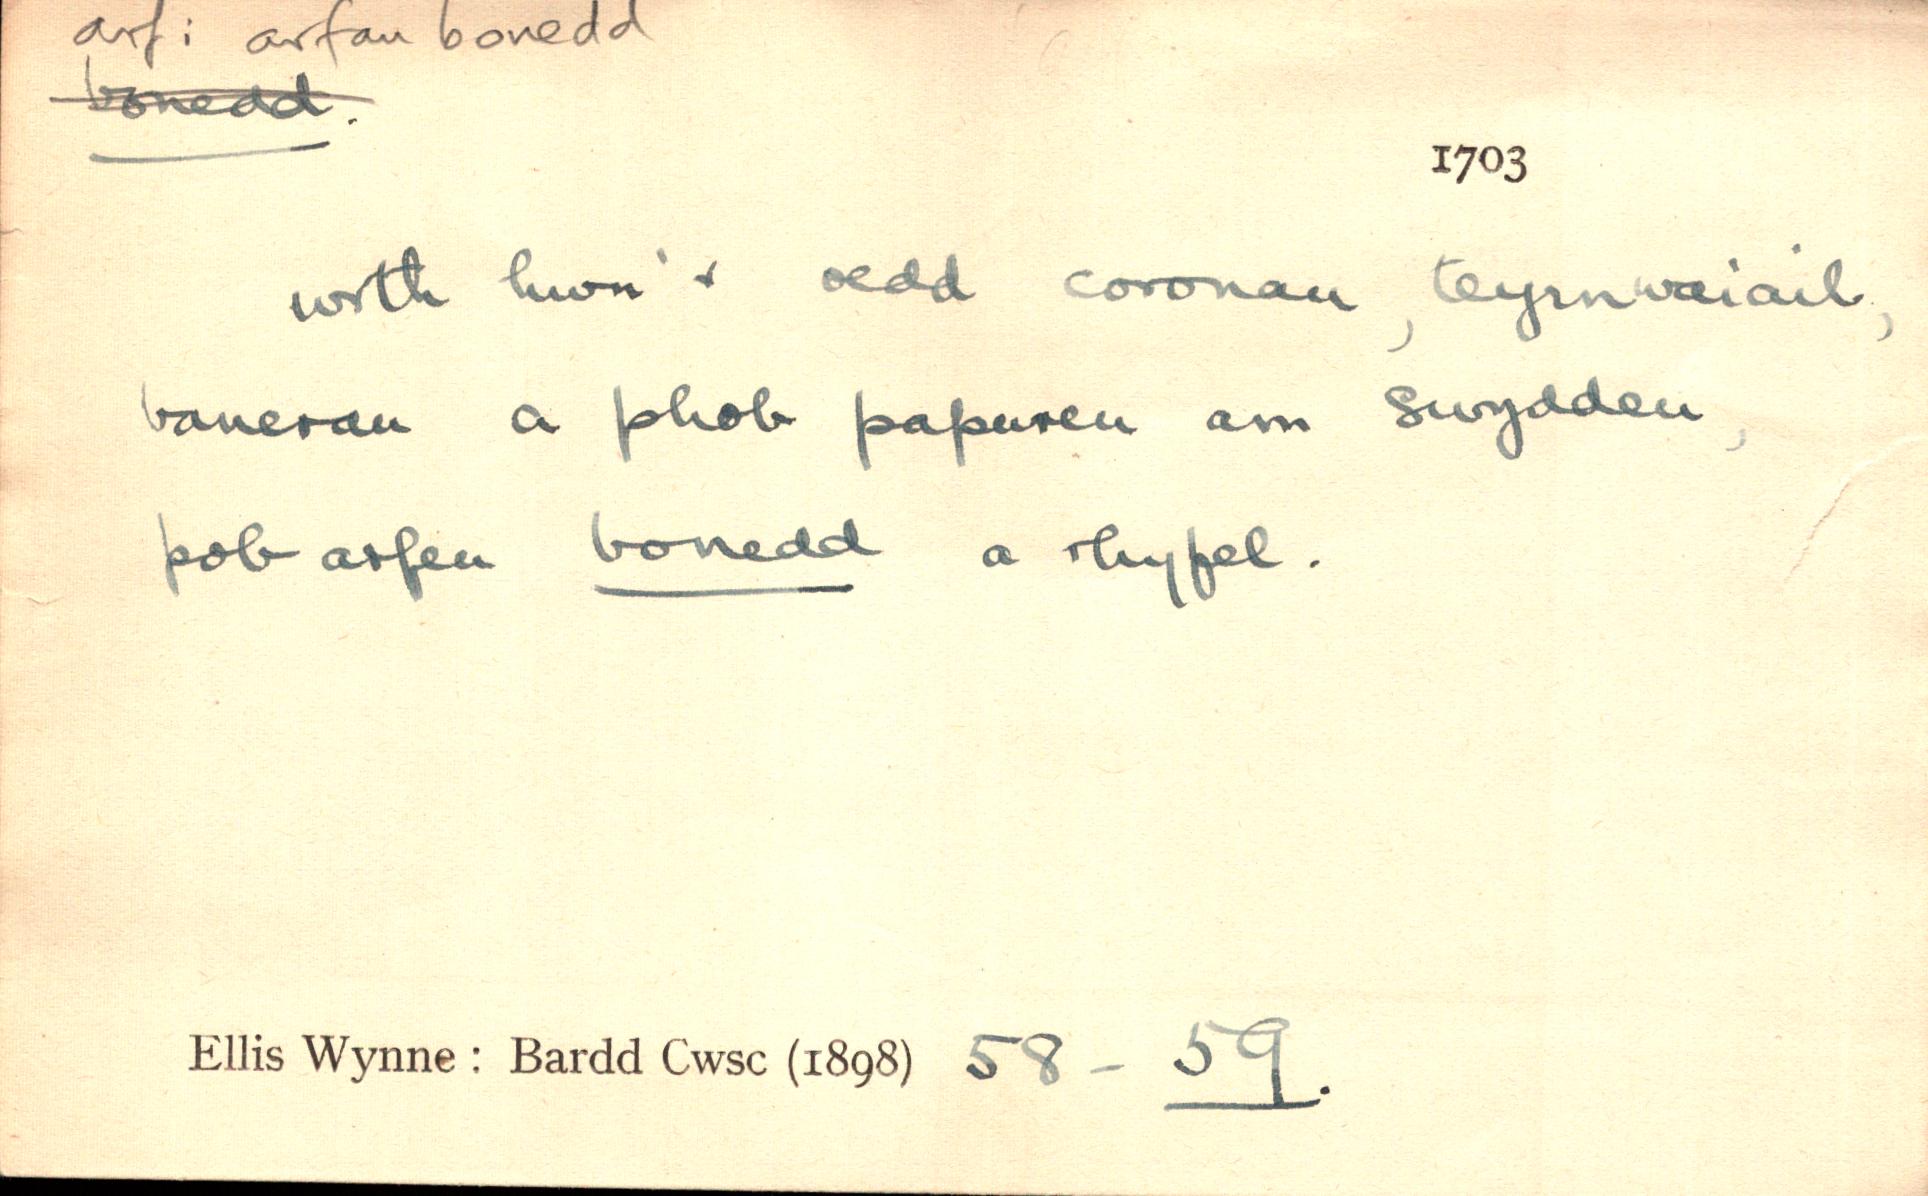 arf: arfau bonedd
bonedd.
1703
wrth hwn 'r oedd coronau, teyrnwiail,
baneran a phob papuren am Swydden,
pob arfeu bonedd a rhyfel.
Ellis Wynne: Bardd Cwsc (1898) 58 - 59.